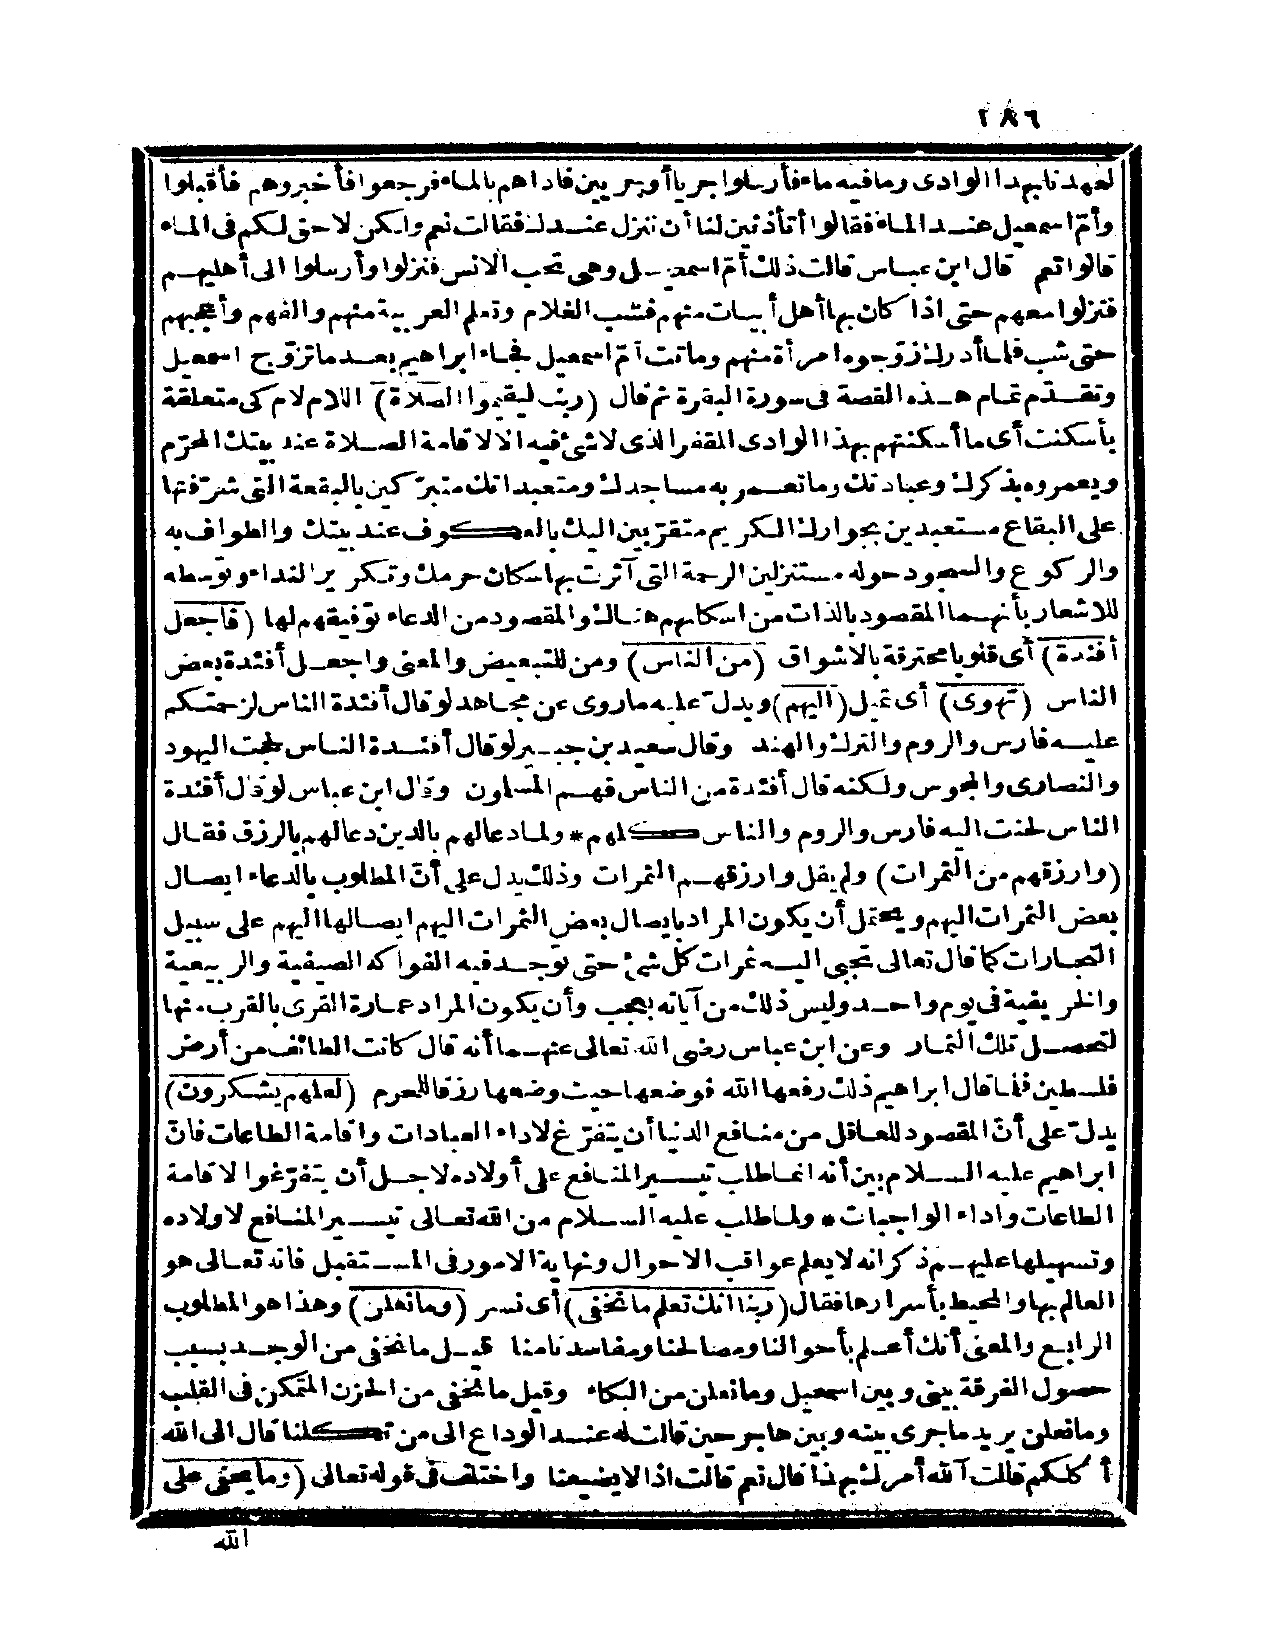 ١٨٦
لعهدنا بهذا الوادى وما فيه ماء فأرسلوا جريا أو جريين فاذاهم بالماء فرجعوا فأخبروهم فأقبلوا
وأمّ اسمعيل عند الماء فقالوا أتأذنين لنا أن ننزل عندك فقالت نعم ولكن لا حق لكم فى الماء
قالوا نعم قال ابن عباس قالت ذلك أمّ اسمعيل وهى تحب الانس فنزلوا وأرسلوا الى أهليهم
فنزلوا معهم حتى اذا كان بها أهل أبيات منهم فشب الغلام وتعلم العربية منهم والفهم وأعجبهم
حتى شب فلما أدرك زوّجوه امرأة منهم وماتت أمّ اسمعيل فجاء ابراهيم بعد ما تزوّج اسمعيل
وتقدّم تمام هذه القصة فى سورة البقرة ثم قال (ربنا ليقيموا الصلاة) اللام لام كى متعلقة
بأسكنت أى ما أسكنتهم بهذا الوادى المقفر الذى لاشئ فيه الا لاقامة الصلاة عند بيتك المحرّم
ويعمروه بذكرك وعبادتك وما تعمر به مساجدك ومتعبداتك متبرّكين بالبقعة التى شرّفتها
على البقاع مستعبدين بجوارك الكريم متقرّبين اليك بالعكوف عند بيتك والطواف به
والركوع والسجود حوله مستنزلين الرحمة التى آثرت بها سكان حرمك وتكرير النداء وتوسطه
للاشعار بأنهما المقصود بالذات من اسكانهم هنالك والمقصود من الدعاء توفيقهم لها (فاجعل
أفئدة) أى قلوبا محترقة بالاشواق (من الناس) ومن للتبعيض والمعنى واجعل أفئدة بعض
الناس (تهوى) أى تميل (اليهم) ويدل عليه ماروى عن مجاهد لو قال أفئدة الناس لزحمتكم
عليه فارس والروم والترك والهند وقال سعيد بن جبير لو قال أفئدة الناس لحجت اليهود
والنصارى والمجوس ولكنه قال أفئدة من الناس فهم المسلمون وقال ابن عباس لو قال أفئدة
الناس لحنت اليه فارس والروم والناس كلهم * ولما دعا لهم بالدين دعا لهم بالرزق فقال
(وارزقهم من الثمرات) ولم يقل وارزقهم الثمرات وذلك يدل على أنّ المطلوب بالدعاء ايصال
بعض الثمرات اليهم ويحتمل أن يكون المراد بايصال بعض الثمرات اليهم ايصالها اليهم على سبيل
التجارات كما قال تعالى يجبى اليه ثمرات كل شئ حتى توجد فيه الفواكه الصيفية والربيعية
والخريفية فى يوم واحد وليس ذلك من آياته بعجب وأن يكون المراد عمارة القرى بالقرب منها
لتحصل تلك الثمار وعن ابن عباس رضى الله تعالى عنهما أنه قال كانت الطائف من أرض
فلسطين فلما قال ابراهيم ذلك رفعها الله فوضعها حيث وضعها رزقا للحرم (لعلهم يشكرون)
يدل على أنّ المقصود للعاقل من منافع الدنيا أن يتفرّغ لاداء العبادات واقامة الطاعات فانّ
ابراهيم عليه السلام بين أنه انما طلب تيسير المنافع على أولاده لاجل أن يتفرّغوا لاقامة
الطاعات واداء الواجبات * ولما طلب عليه السلام من الله تعالى تيسير المنافع لاولاده
وتسهيلها عليهم ذكر انه لا يعلم عواقب الاحوال ونهاية الامور فى المستقبل فانه تعالى هو
العالم بها والمحيط بأسرارها فقال (ربنا انك تعلم ما نخفى) أى نسر (وما نعلن) وهذا هو المطلوب
الرابع والمعنى أنك أعلم بأحوالنا ومصالحنا ومفاسدنا منا قيل ما نخفى من الوجد بسبب
حصول الفرقة بينى وبين اسمعيل وما نعلن من البكاء وقيل ما نخفى من الحزن المتمكن فى القلب
وما نعلن يريد ما جرى بينه وبين هاجر حين قالت له عند الوداع الى من تكلنا قال الى الله
أكلكم قالت آلله أمرك بهذا قال نعم قالت اذا لا يضيعنا واختلف فى قوله تعالى (وما يخفى على
الله